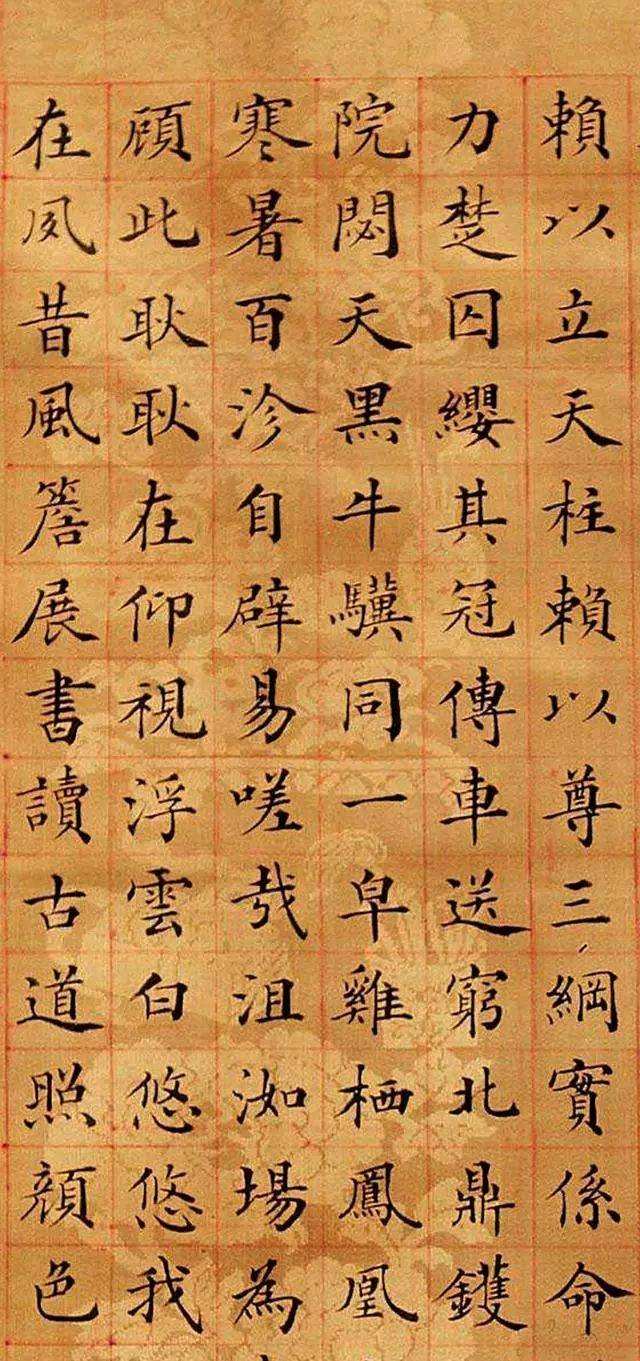 賴以立天柱賴以尊三綱實係命
力楚囚纓其冠傳車送窮北鼎鑊
院閟天黑牛驥同一皁雞栖鳳凰
寒暑百沴自辟易嗟哉沮洳場為
顧此耿耿在仰視浮雲白悠悠我
在夙昔風簷展書讀古道照顏色